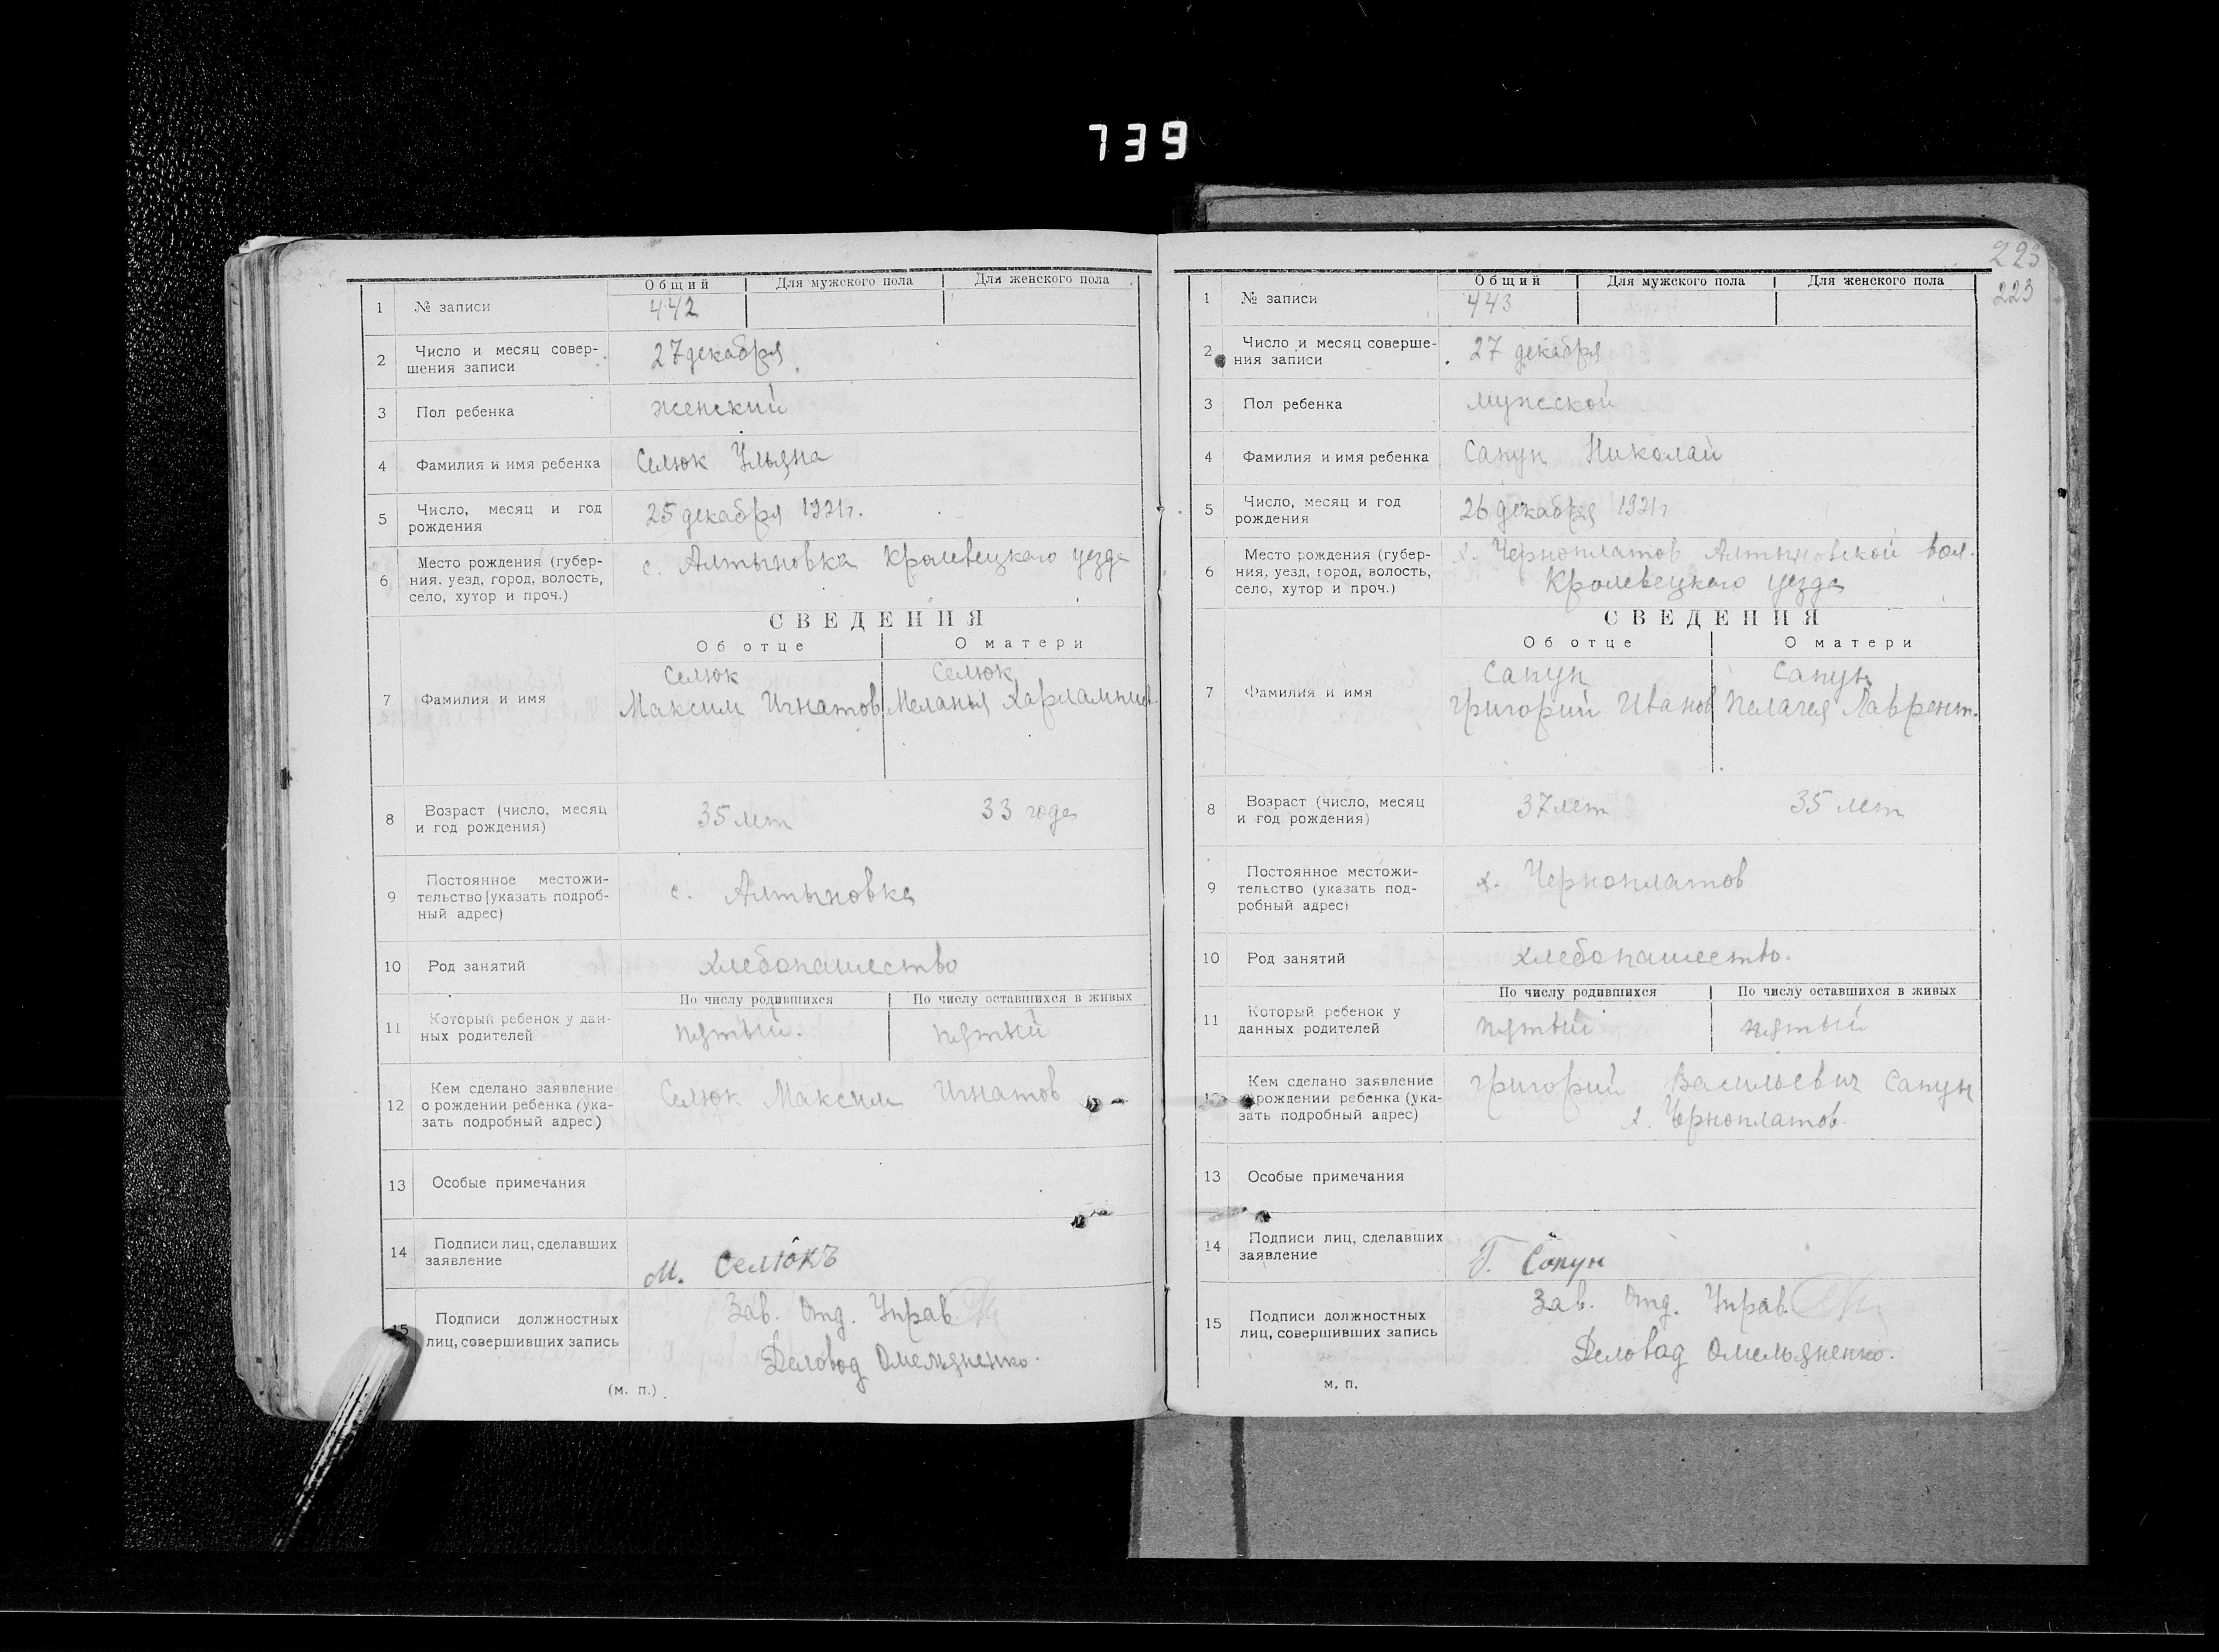 739
1 № записи
Общий Для мужского пола Для женского пола
442
2 Число и месяц совер-
шения записи
27 декабря
3 Пол ребенка
женский
4 Фамилия и имя ребенка
Селюк Ульяна
5 Число, месяц и год
рождения
25 декабря 1921 г.
6 Место рождения (губер-
ния, уезд, город, волость,
село, хутор и проч.)
с. Алтыновка Кролевецкого уезда
СВЕДЕНИЯ
Об отце О матери
7 Фамилия и имя
Селюк Селюк
Максим Игнатов Меланья Харлампиев
8 Возраст (число, месяц
и год рождения)
35 лет 33 года
9 Постоянное местожи-
тельство (указать подроб-
ный адрес)
с. Алтыновка
10 Род занятий
хлебопашество
По числу родившихся По числу оставшихся в живых
11 Который ребенок у дан-
ных родителей
пятый. пятый
12 Кем сделано заявление
о рождении ребенка (ука-
зать подробный адрес)
Селюк Максим Игнатов
13 Особые примечания
14 Подписи лиц, сделавших
заявление
М. Селюкъ
15 Подписи должностных
лиц, совершивших запись
Зав. Отд. Управ
Деловод Омельяненко.
(м. п.)
223
223
1 № записи
Общий Для мужского пола Для женского пола
443
2 Число и месяц соверше-
ния записи
27 декабря
3 Пол ребенка
мужской
4 Фамилия и имя ребенка
Сапун Николай
5 Число, месяц и год
рождения
26 декабря 1921 г
6 Место рождения (губер-
ния, уезд, город, волость,
село, хутор и проч.)
х. Черноплатов Алтыновской вол.
Кролевецкого уезда
СВЕДЕНИЯ
Об отце О матери
7 Фамилия и имя
Сапун Сапун
Григорий Иванов Пелагея Лаврент.
8 Возраст (число, месяц
и год рождения)
37 лет 35 лет
9 Постоянное местожи-
тельство (указать под-
робный адрес)
х. Черноплатов
10 Род занятий
хлебопашество.
По числу родившихся По числу оставшихся в живых
11 Который ребенок у
данных родителей
пятый пятый
12 Кем сделано заявление
о рождении ребенка (ука-
зать подробный адрес)
Григорий Васильевич Сапун
х. Черноплатов.
13 Особые примечания
14 Подписи лиц, сделавших
заявление
Г. Сапун
15 Подписи должностных
лиц, совершивших запись
Зав. Отд. Управ.
Деловод Омельяненко.
м. п.